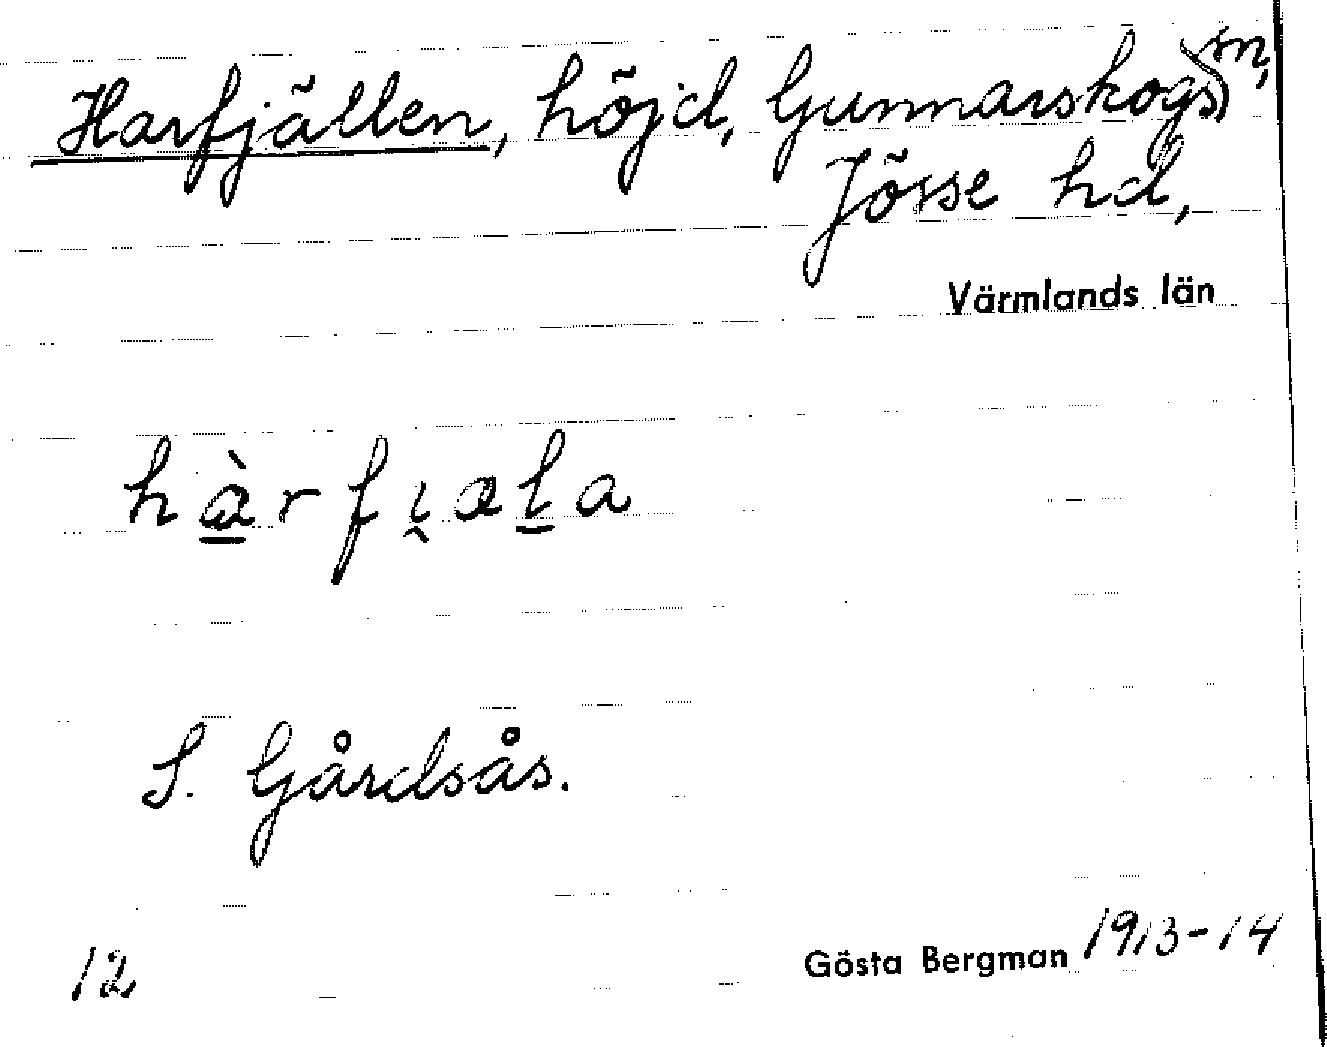 Harfjällen, höjd, Gunnarskogs sn,
Jösse hd,
Värmlands län
hàrfi̯æla
S. Gårdsås.
12
Gösta Bergman 1913-14